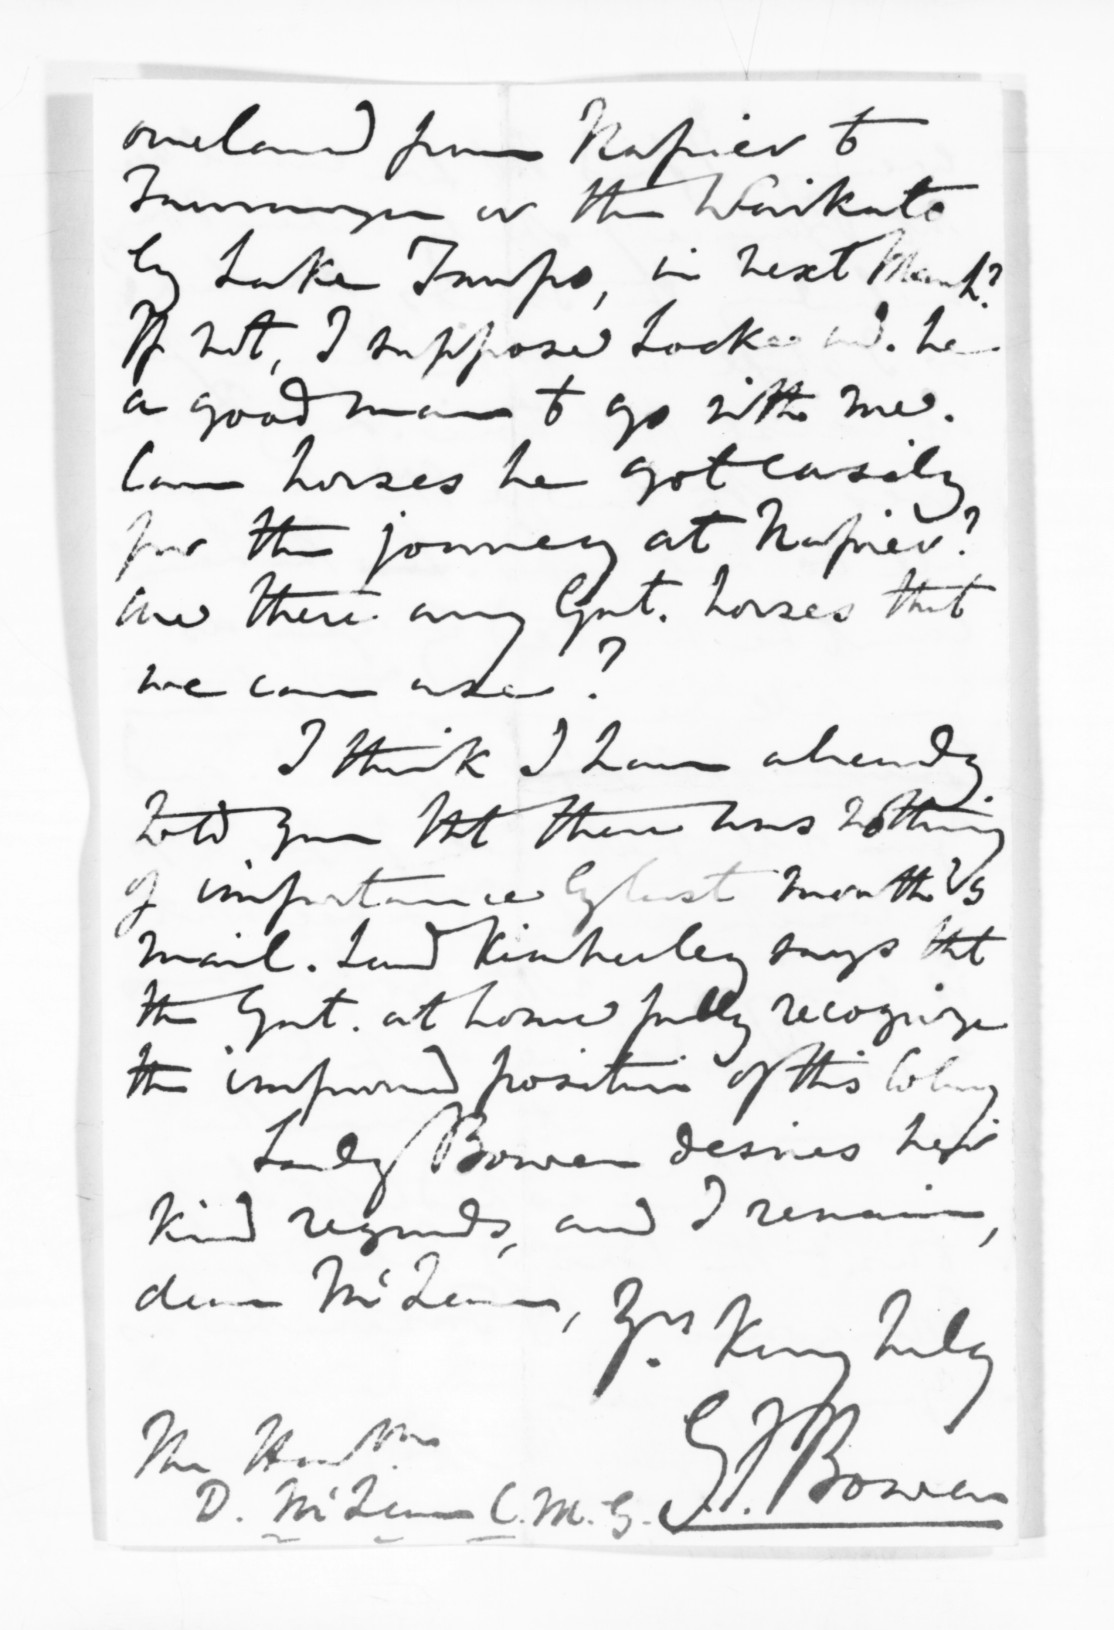 overland from Napier to
Tauranga or the Waikato
by Lake Taupo, in next March?
If not, I suppose Locke wd. be
a good man to go with me.
Can horses be got easily
for the journey at Napier?
Are there any Govt. horses that
we can use?
I think I have already
told you tht there was nothing
of importance by last month's
mail. Lord Kimberley says tht
the Govt. at home fully recognize
the improved position of this Colony
Lady Bowen desires her
kind regards, and I remain,
dear McLean, Yrs very truly
G. F. Bowen
The Honble
D. McLean C.M.G.